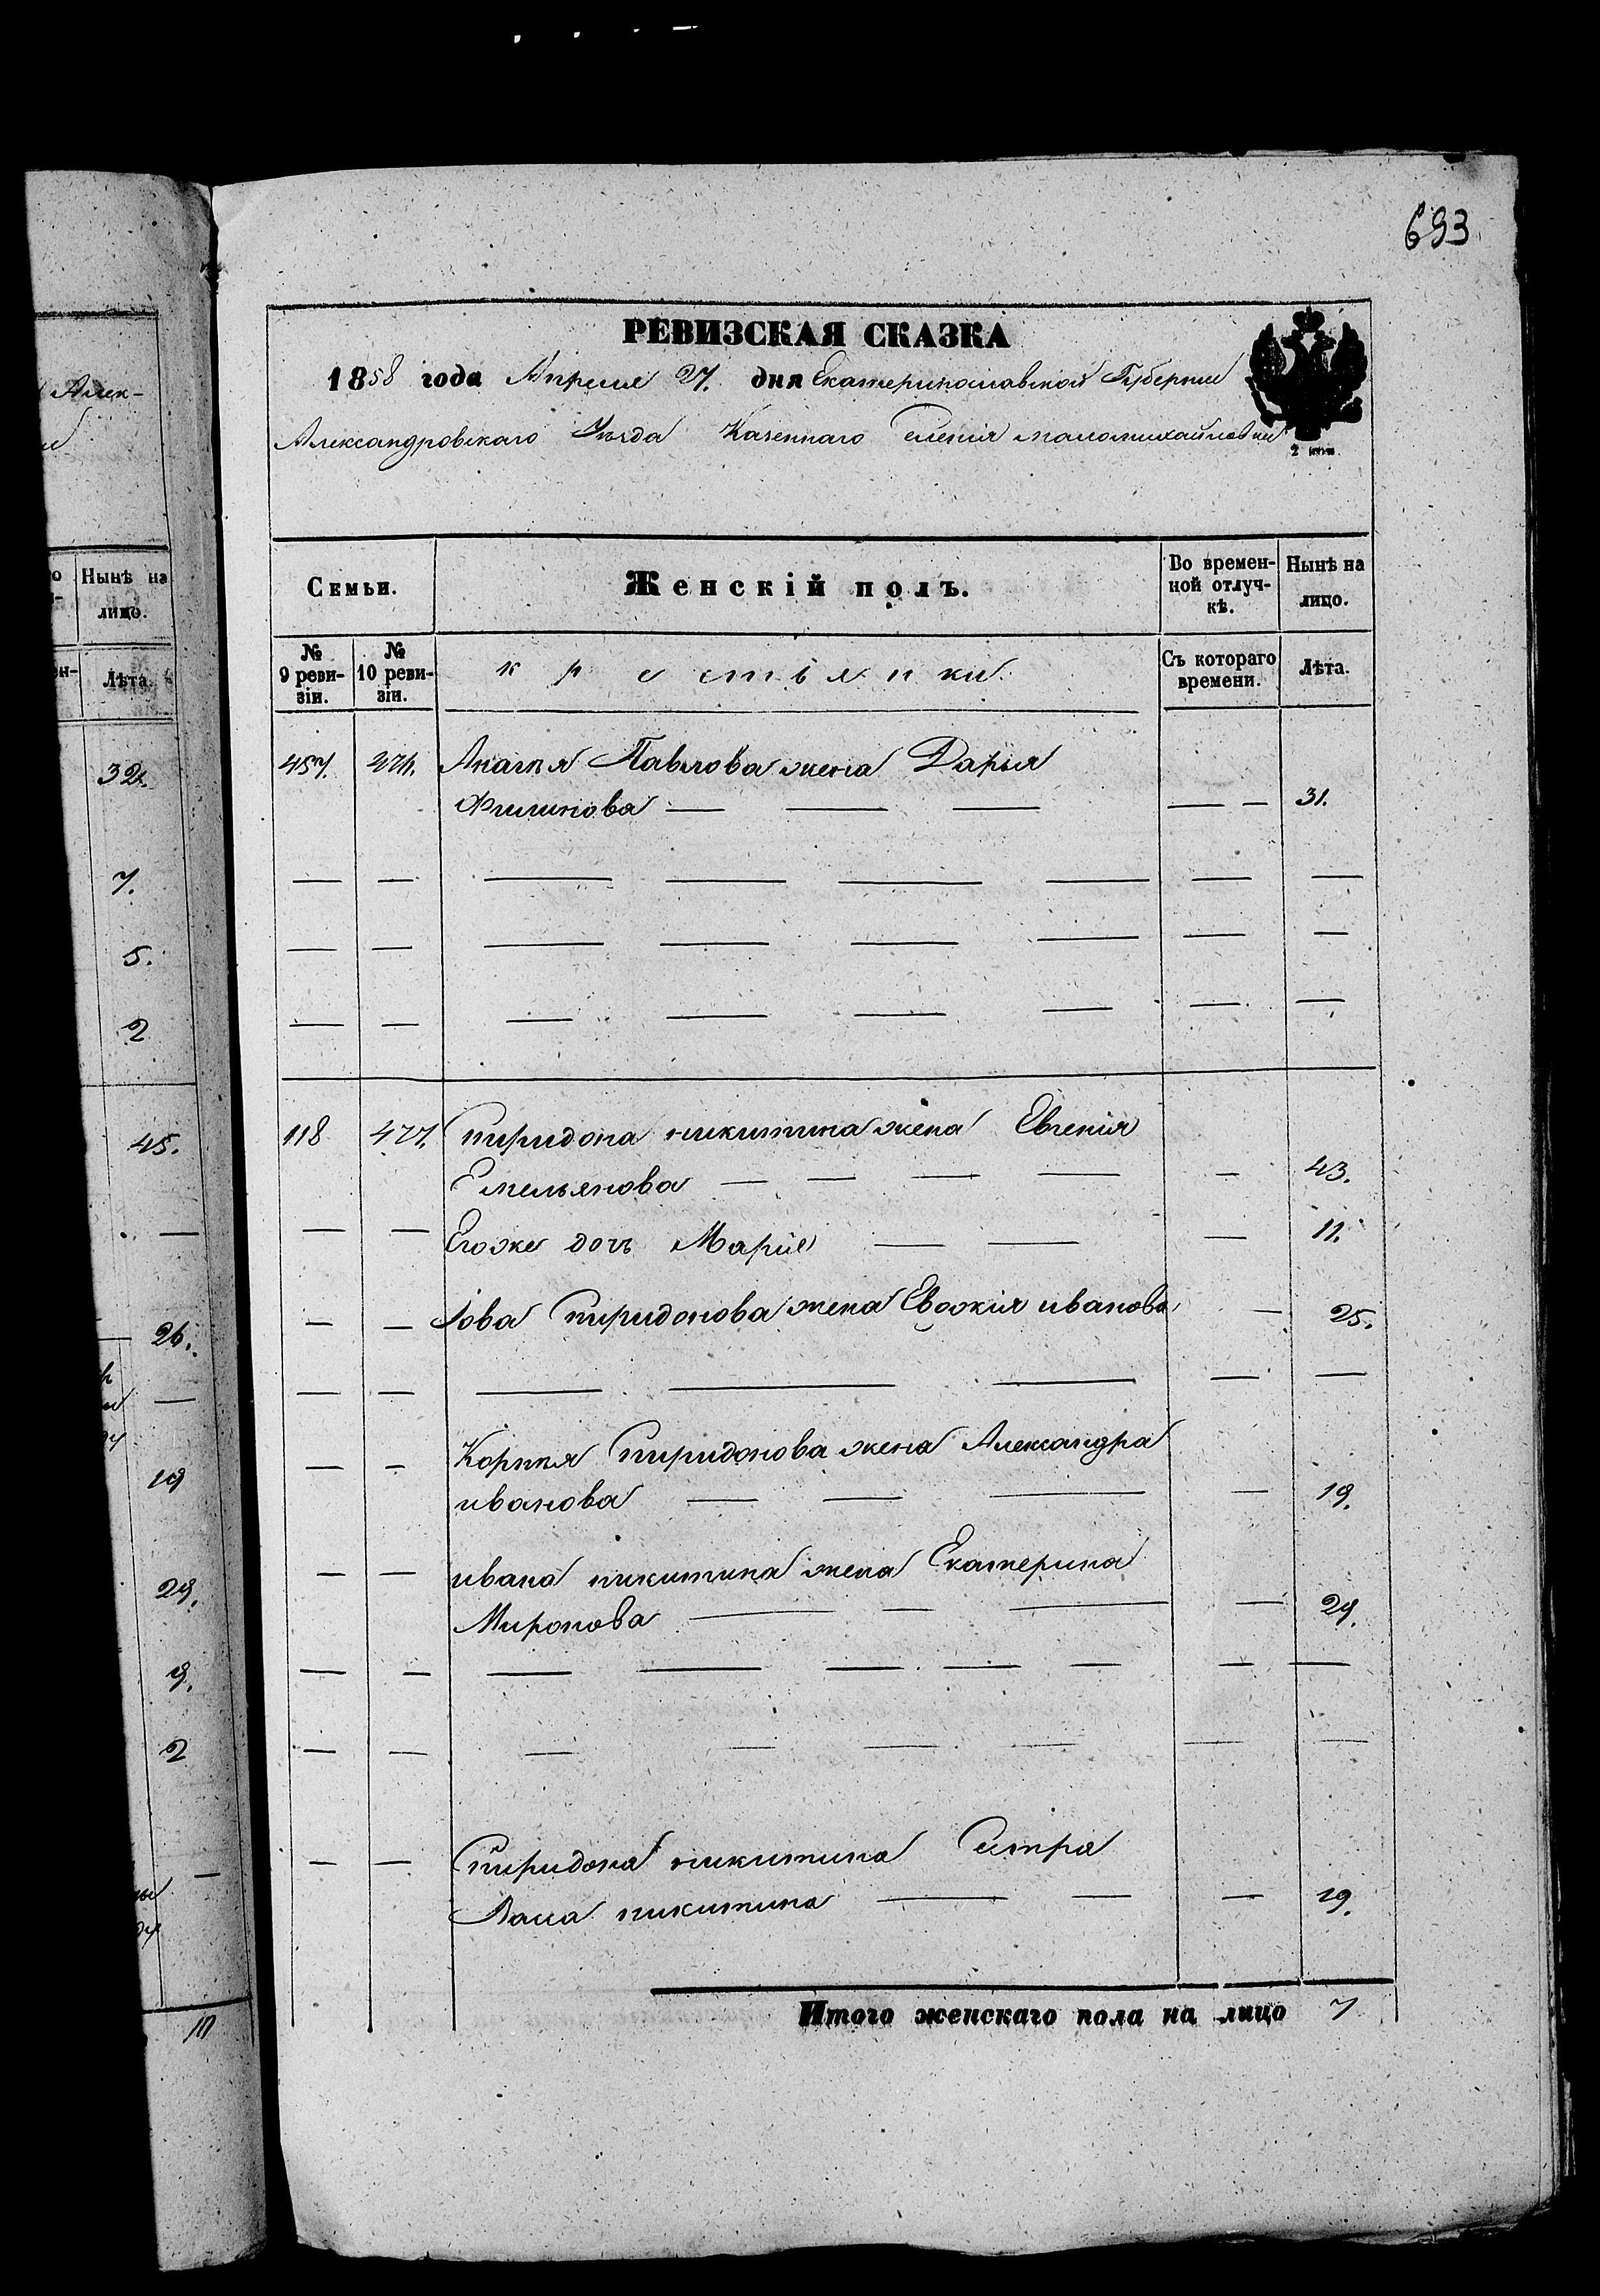 693
РЕВИЗСКАЯ СКАЗКА
1858 года Апреля 27. дня Екатеринославской Губернии
Александровскаго Уѣзда Казеннаго Селенія маломихайловки
2 коп.
Семьи.
Женскій полъ.
Во времен-
ной отлуч-
кѣ.
Нынѣ на
лицо.
№
9 реви-
зіи.
№
10 реви-
зіи.
крестьянки.
Съ котораго
времени.
Лѣта.
457. Павлова жена Дарья
Филипова — — — — — 31.
118 477. Спиридона никитина жена Евгенія
Емельянова — — — — — 43.
— — Егоже дочь Марія — — — 11.
— — Іова Спиридонова жена Евдокія иванова — 25.
— — Спиридонова жена Александра
иванова — — — — 19.
— — ивана никитина жена Екатерина
Миронова — — — — 29.
— — Спиридона никитина Сестра
Васса никитина — — — 19.
Итого женскаго пола на лицо 7
Алек-
Нынѣ на
лицо.
Лѣта.
32.
7.
5.
2
45.
26.
19
29.
9.
2
10